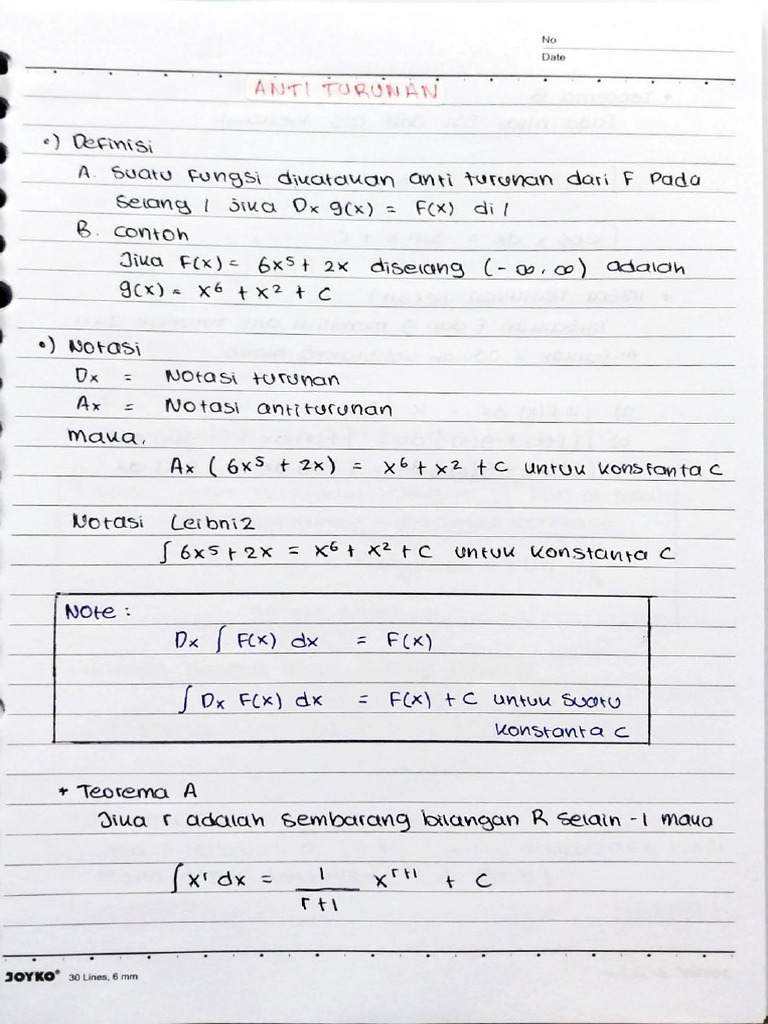 No
Date
ANTI TURUNAN
•) Definisi
A. Suatu Fungsi dikatakan anti turunan dari F Pada
Selang I Jika Dx g(x) = F(x) di I
B. Contoh
Jika F(x) = 6x⁵ + 2x diselang (-∞, ∞) adalah
g(x) = x⁶ + x² + C
•) Notasi
Dx = Notasi turunan
Ax = Notasi antiturunan
maka,
Ax (6x⁵ + 2x) = x⁶ + x² + C untuk konstanta C
Notasi Leibniz
∫ 6x⁵ + 2x = x⁶ + x² + C untuk konstanta C
Note :
Dx ∫ F(x) dx = F(x)
∫ Dx F(x) dx = F(x) + C untuk suatu
konstanta C
* Teorema A
Jika r adalah sembarang bilangan R selain -1 maka
∫ xʳ dx = 1/(r+1) xʳ⁺¹ + C
JOYKO® 30 Lines, 6 mm